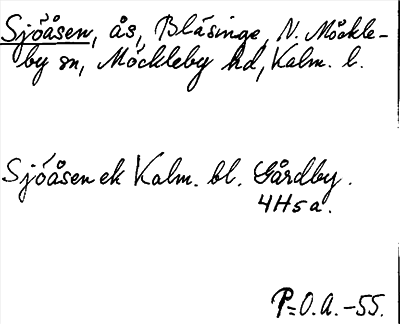 Sjöåsen, ås, Blåsinge, N. Möckle-
by sn, Möckleby hd, Kalm. l.
Sjöåsen ek Kalm. bl. Gårdby.
4H5a.
P=O.A.-55.